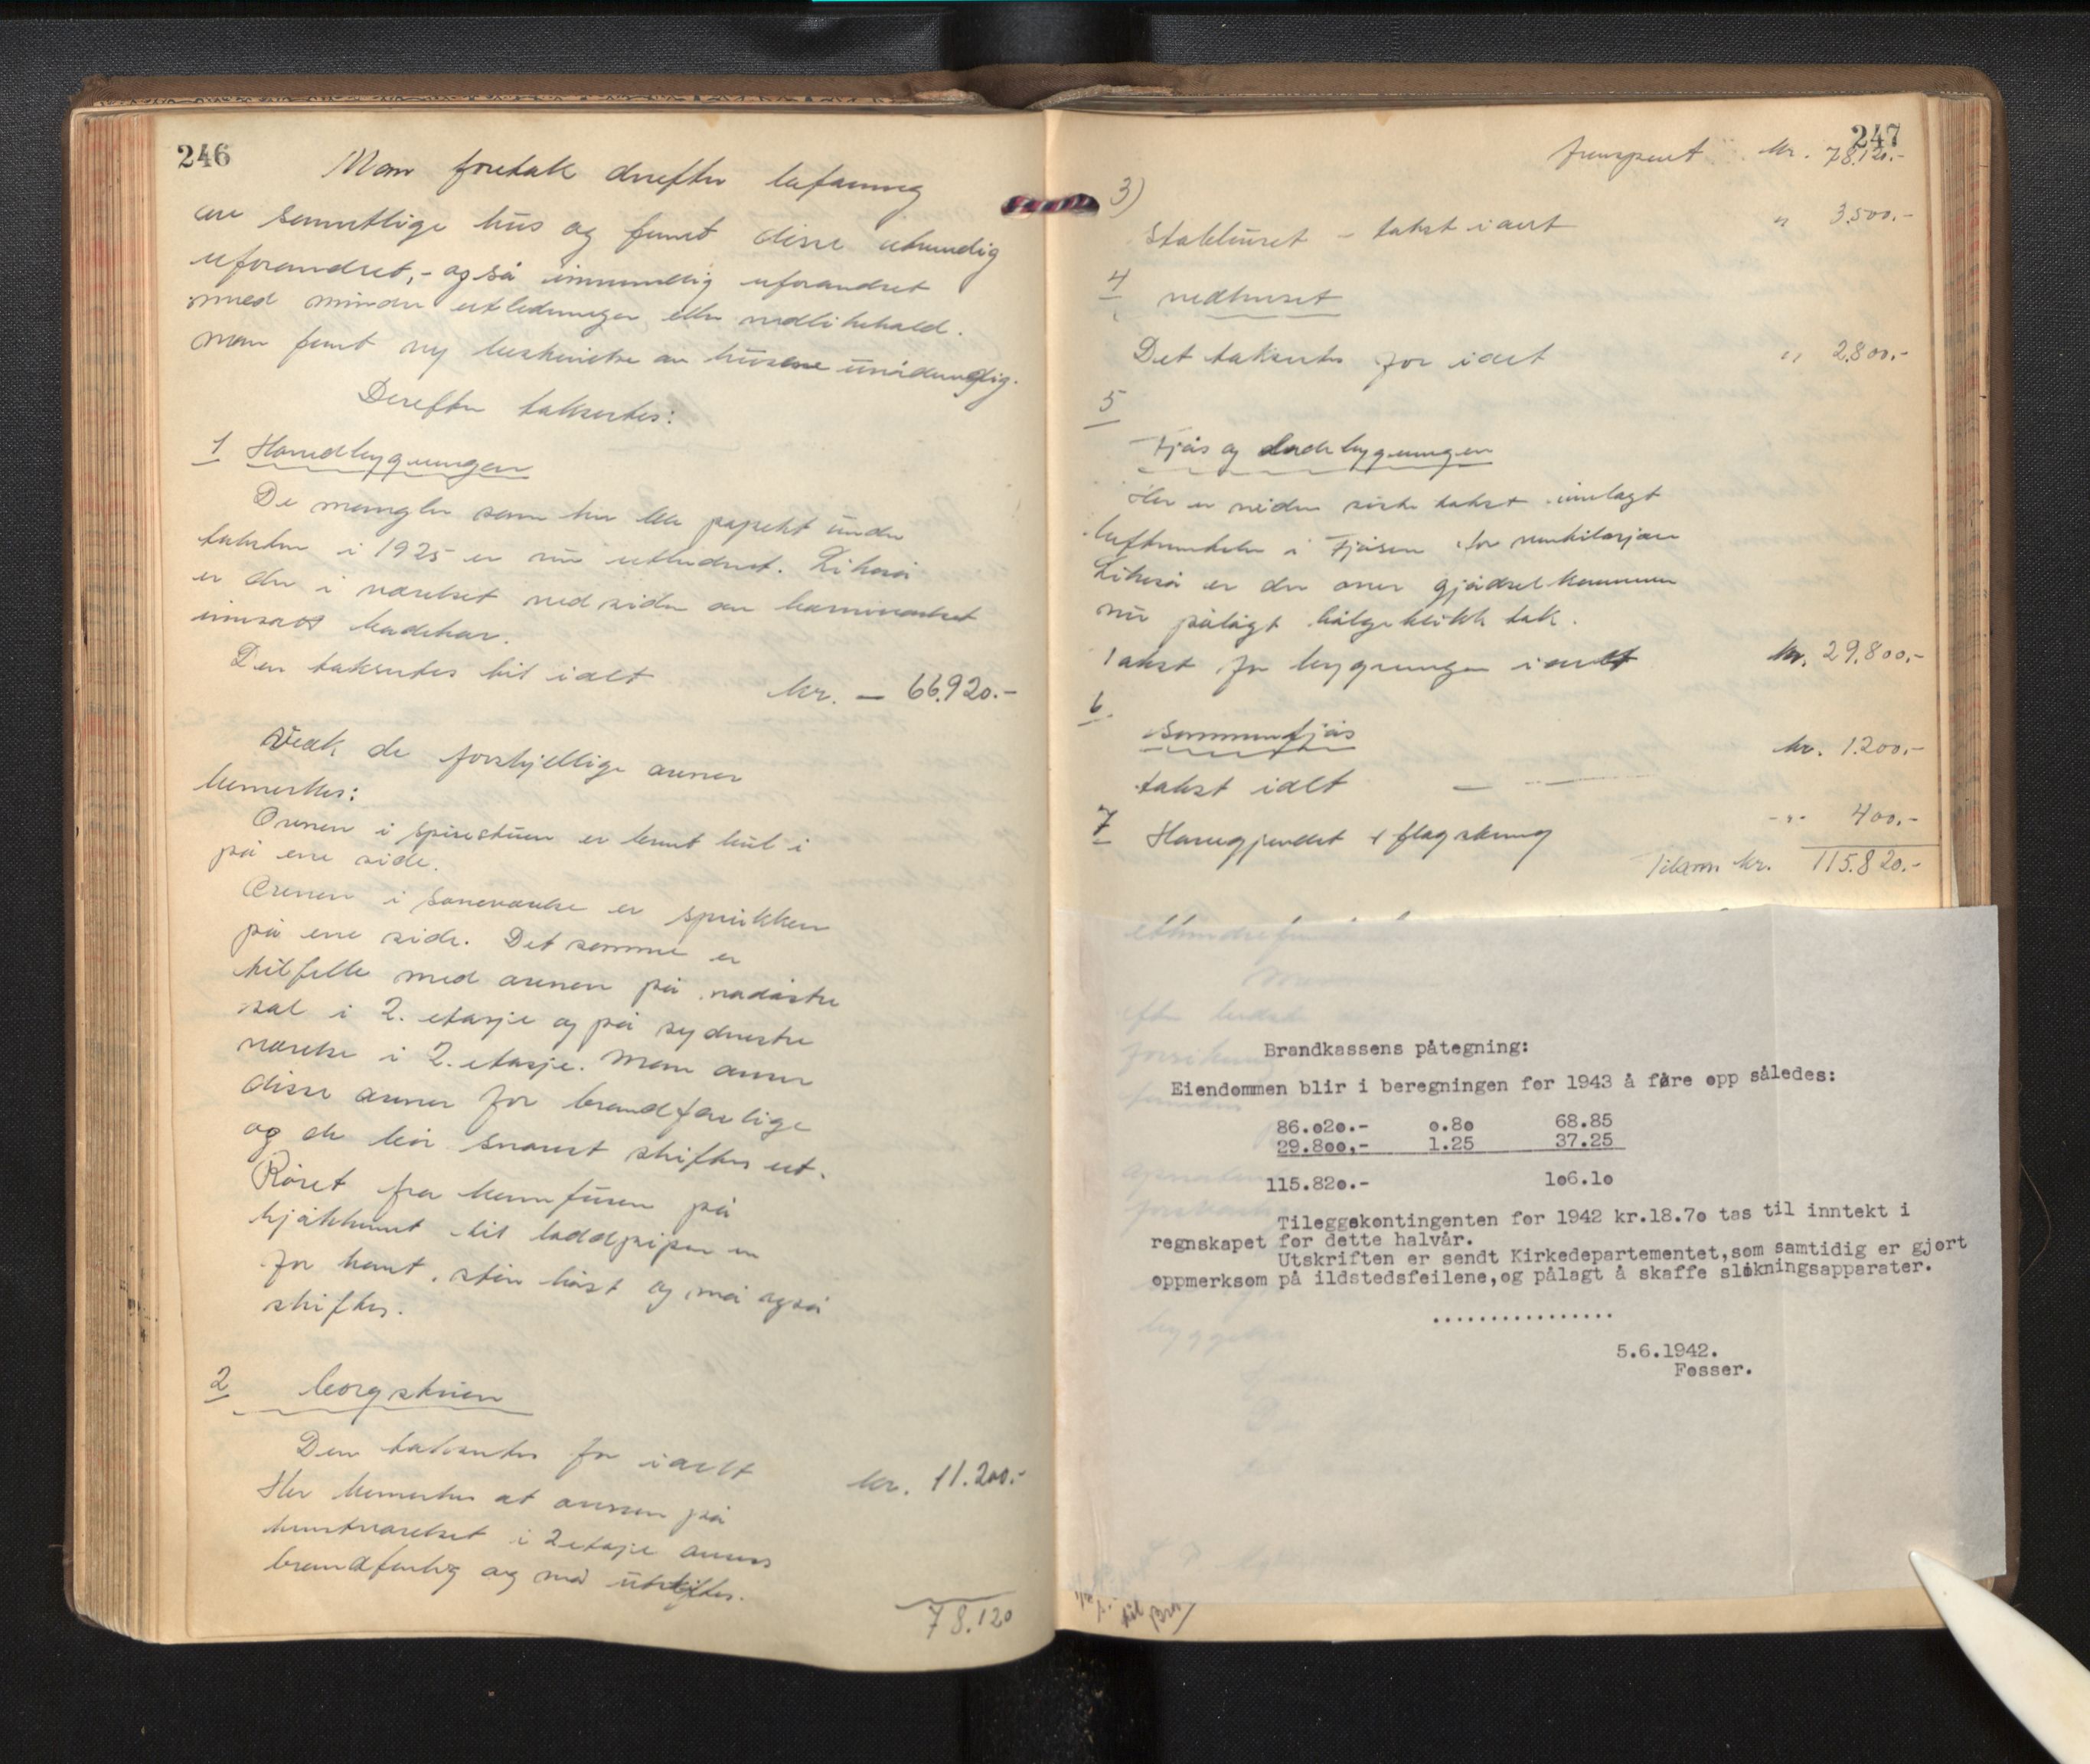 246
Man foretok derefter befaring
av samtlige hus og fant disse utvendig
uforandret,- også innvendig uforandret
med mindre utbedringer eller vedlikehold.
Man fant ny beskrivelse av husene unødvendig.
Derefter taksertes:
1 Hovedbygningen
De mangler som her ble påpekt under
taksten i 1925 er nu utbedret. Likeså
er der i værelset ved siden av barneværelset
innsatt badekar.
Den taksertes til ialt kr. — 66.920.-
Vedk de forskjellige ovner
bemerkes:
Ovnen i spisestuen er brent hul i
på ene side.
Ovnen i soveværelse er sprukken
på ene side. Det samme er
tilfelle med ovnen på nordøstre
sal i 2. etasje og på sydvestre
værelse i 2. etasje. Man anser
disse ovner for brandfarlige
og de bør snarest skiftes ut.
Røret fra komfuren på
kjøkkenet til loddpipen er
for kort, står løst og må også
skiftes.
2 borgstuen
Den taksertes for ialt kr. 11.200.-
Her bemerkes at ovnen på
kontorværelset i 2 etasje ansees
brandfarlig og må utskiftes.
78.120
247
transport kr. 78.120.-
3)
Stabburet - takst ialt " 3.500.-
4 vedhuset
Det taksertes for ialt " 2.800.-
5
Fjøs og ladebygningen
Her er siden siste takst innlagt
luftkanaler i Fjøsen for ventilasjon
Likeså er der over gjødselkummen
nu pålagt bølgeblikk tak.
Takst for bygningen ialt kr. 29.800.-
6.
Sommerfjøs
takst ialt — — kr. 1.200.-
7 Havegjerdet & flagstang -"- 400.-
Tilsam. kr. 115.820.-
Brandkassens påtegning:
Eiendommen blir i beregningen før 1943 å føre opp således:
86.020.- 0.80 68.85
29.800,- 1.25 37.25
115.820.- 106.10
Tileggskontingenten for 1942 kr.18.70 tas til inntekt i
regnskapet for dette halvår.
Utskriften er sendt Kirkedepartementet,som samtidig er gjort
oppmerksom på ildstedsfeilene,og pålagt å skaffe slokningsapparater.
................
5.6.1942.
Fosser.